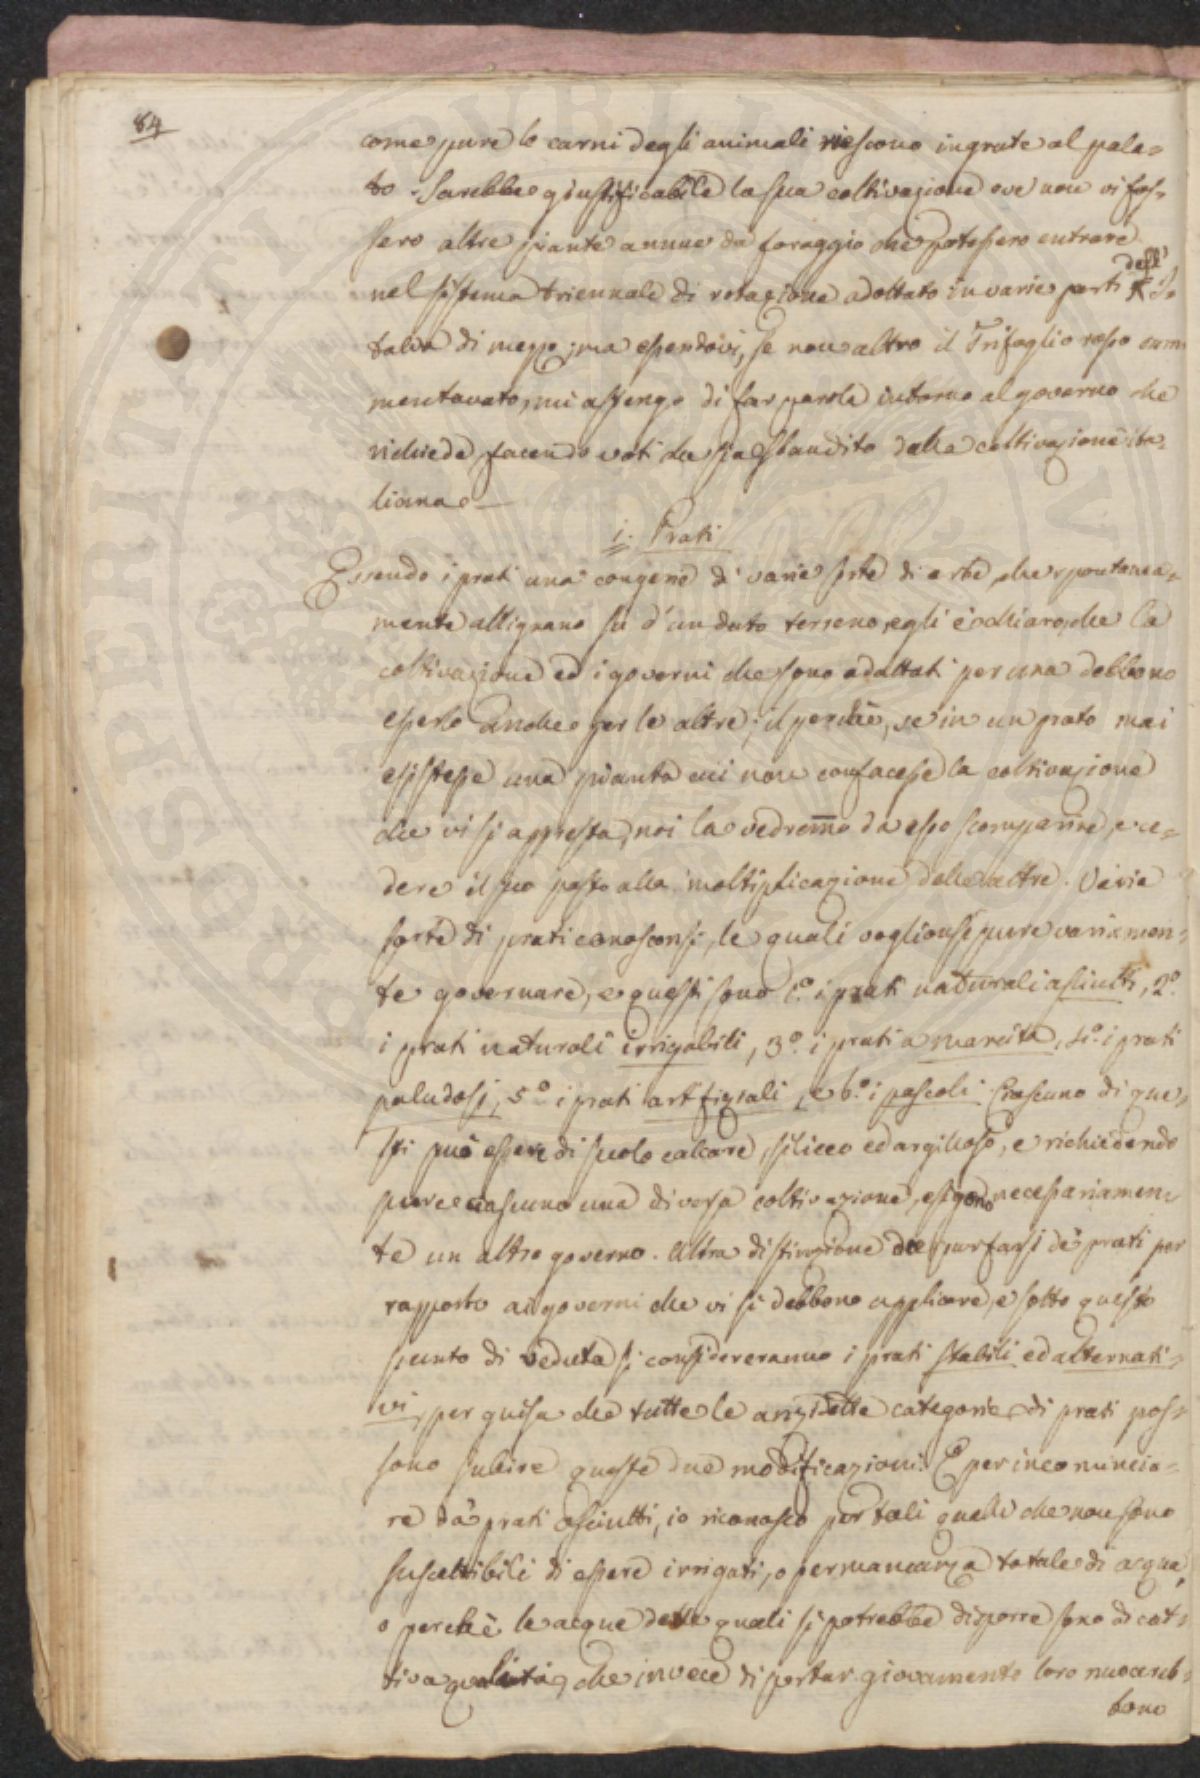 84
come pure le carni degli animali riescono ingrate al pala=
to. Sarebbe giustificabile la sua coltivazione ove non vi fos=
sero altre piante annue da foraggio che potessero entrare
nel sistema triennale di rotazione adottato in varie parti dell' I=
talia di mezzo; ma essendovi, se non altro il Trifoglio rosso sum=
mentovato, mi astengo di far parola intorno al governo che
richiede, facendo voti che sia sbandito dalla coltivazione ita=
liana.
i. Prati
Essendo i prati una congerie di varie sorte di erbe, che spontanea=
mente allignano su d'un dato terreno, egli è chiaro, che la
coltivazione ed i governi che sono adattati per una debbono
esserlo anche per le altre; il perchè, se in un prato mai
esistesse una pianta cui non confacesse la coltivazione
che vi si appresta, noi la vedremo da esso scomparire, e ce=
dere il suo posto alla moltiplicazione delle altre. Varie
sorte di prati conosconsi, le quali voglionsi pure variamen=
te governare, e questi sono 1.o i prati naturali asciutti, 2.o
i prati naturali irrigabili, 3.o i prati a marcita, 4.o i prati
paludosi, 5.o i prati artifiziali, e 6.o i pascoli. Ciascuno di que=
sti può essere di suolo calcare, siliceo ed argilloso, e richiedendo
pure ciascuno una diversa coltivazione, esigono necessariamen=
te un altro governo. Altra distinzione dee pur farsi de' prati per
rapporto ai governi che vi si debbono applicare, e sotto questo
punto di veduta si considereranno i prati stabili ed alternati=
vi, per guisa che tutte le anzidette categorie di prati pos=
sono subire queste due modificazioni. E per incominciа=
re da' prati asciutti, io riconosco per tali quelli che non sono
suscettibili di essere irrigati, o per mancanza totale di acqua,
o perchè le acque delle quali si potrebbe disporre sono di cat=
tiva qualità, che invece di portar giovamento loro nuocereb=
bono